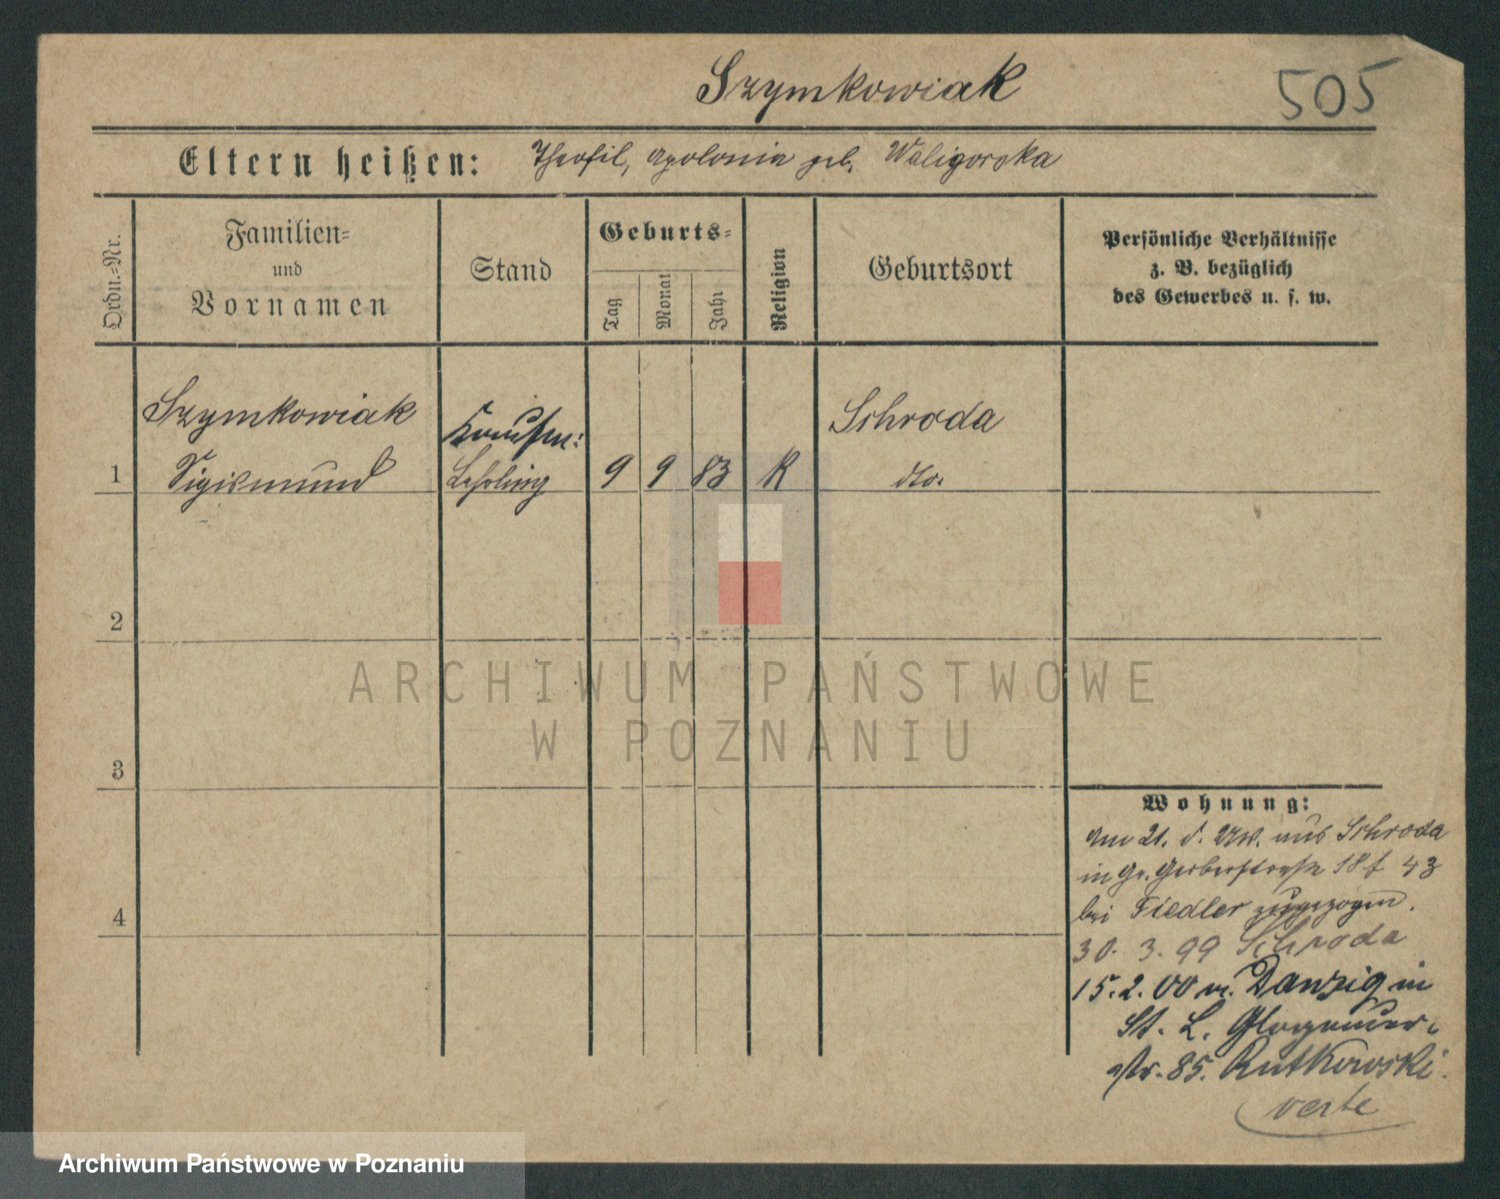 Szymkowiak
505
Eltern heißen: Theofil, Apolonia geb. Waligorska
Ordn.=Nr.
Familien=
und
Vornamen
Stand
Geburts=
Tag
Monat
Jahr
Religion
Geburtsort
Persönliche Verhältnisse
z. B. bezüglich
des Gewerbes u. s. w.
Szymkowiak
Kaufm:
Schroda
1 Sigismund Lehrling 9 9 83 K dto.
2
3
4
ARCHIWUM PAŃSTWOWE
W POZNANIU
Wohnung:
Am 21. d. aus Schroda
in Gr. Gerberstraße 18 43
bei Fiedler zugezogen.
30. 3. 99 Schroda
15. 2. 00 v. Danzig in
St. L. Glogauer-
str. 85. Rutkowski.
verte
Archiwum Państwowe w Poznaniu